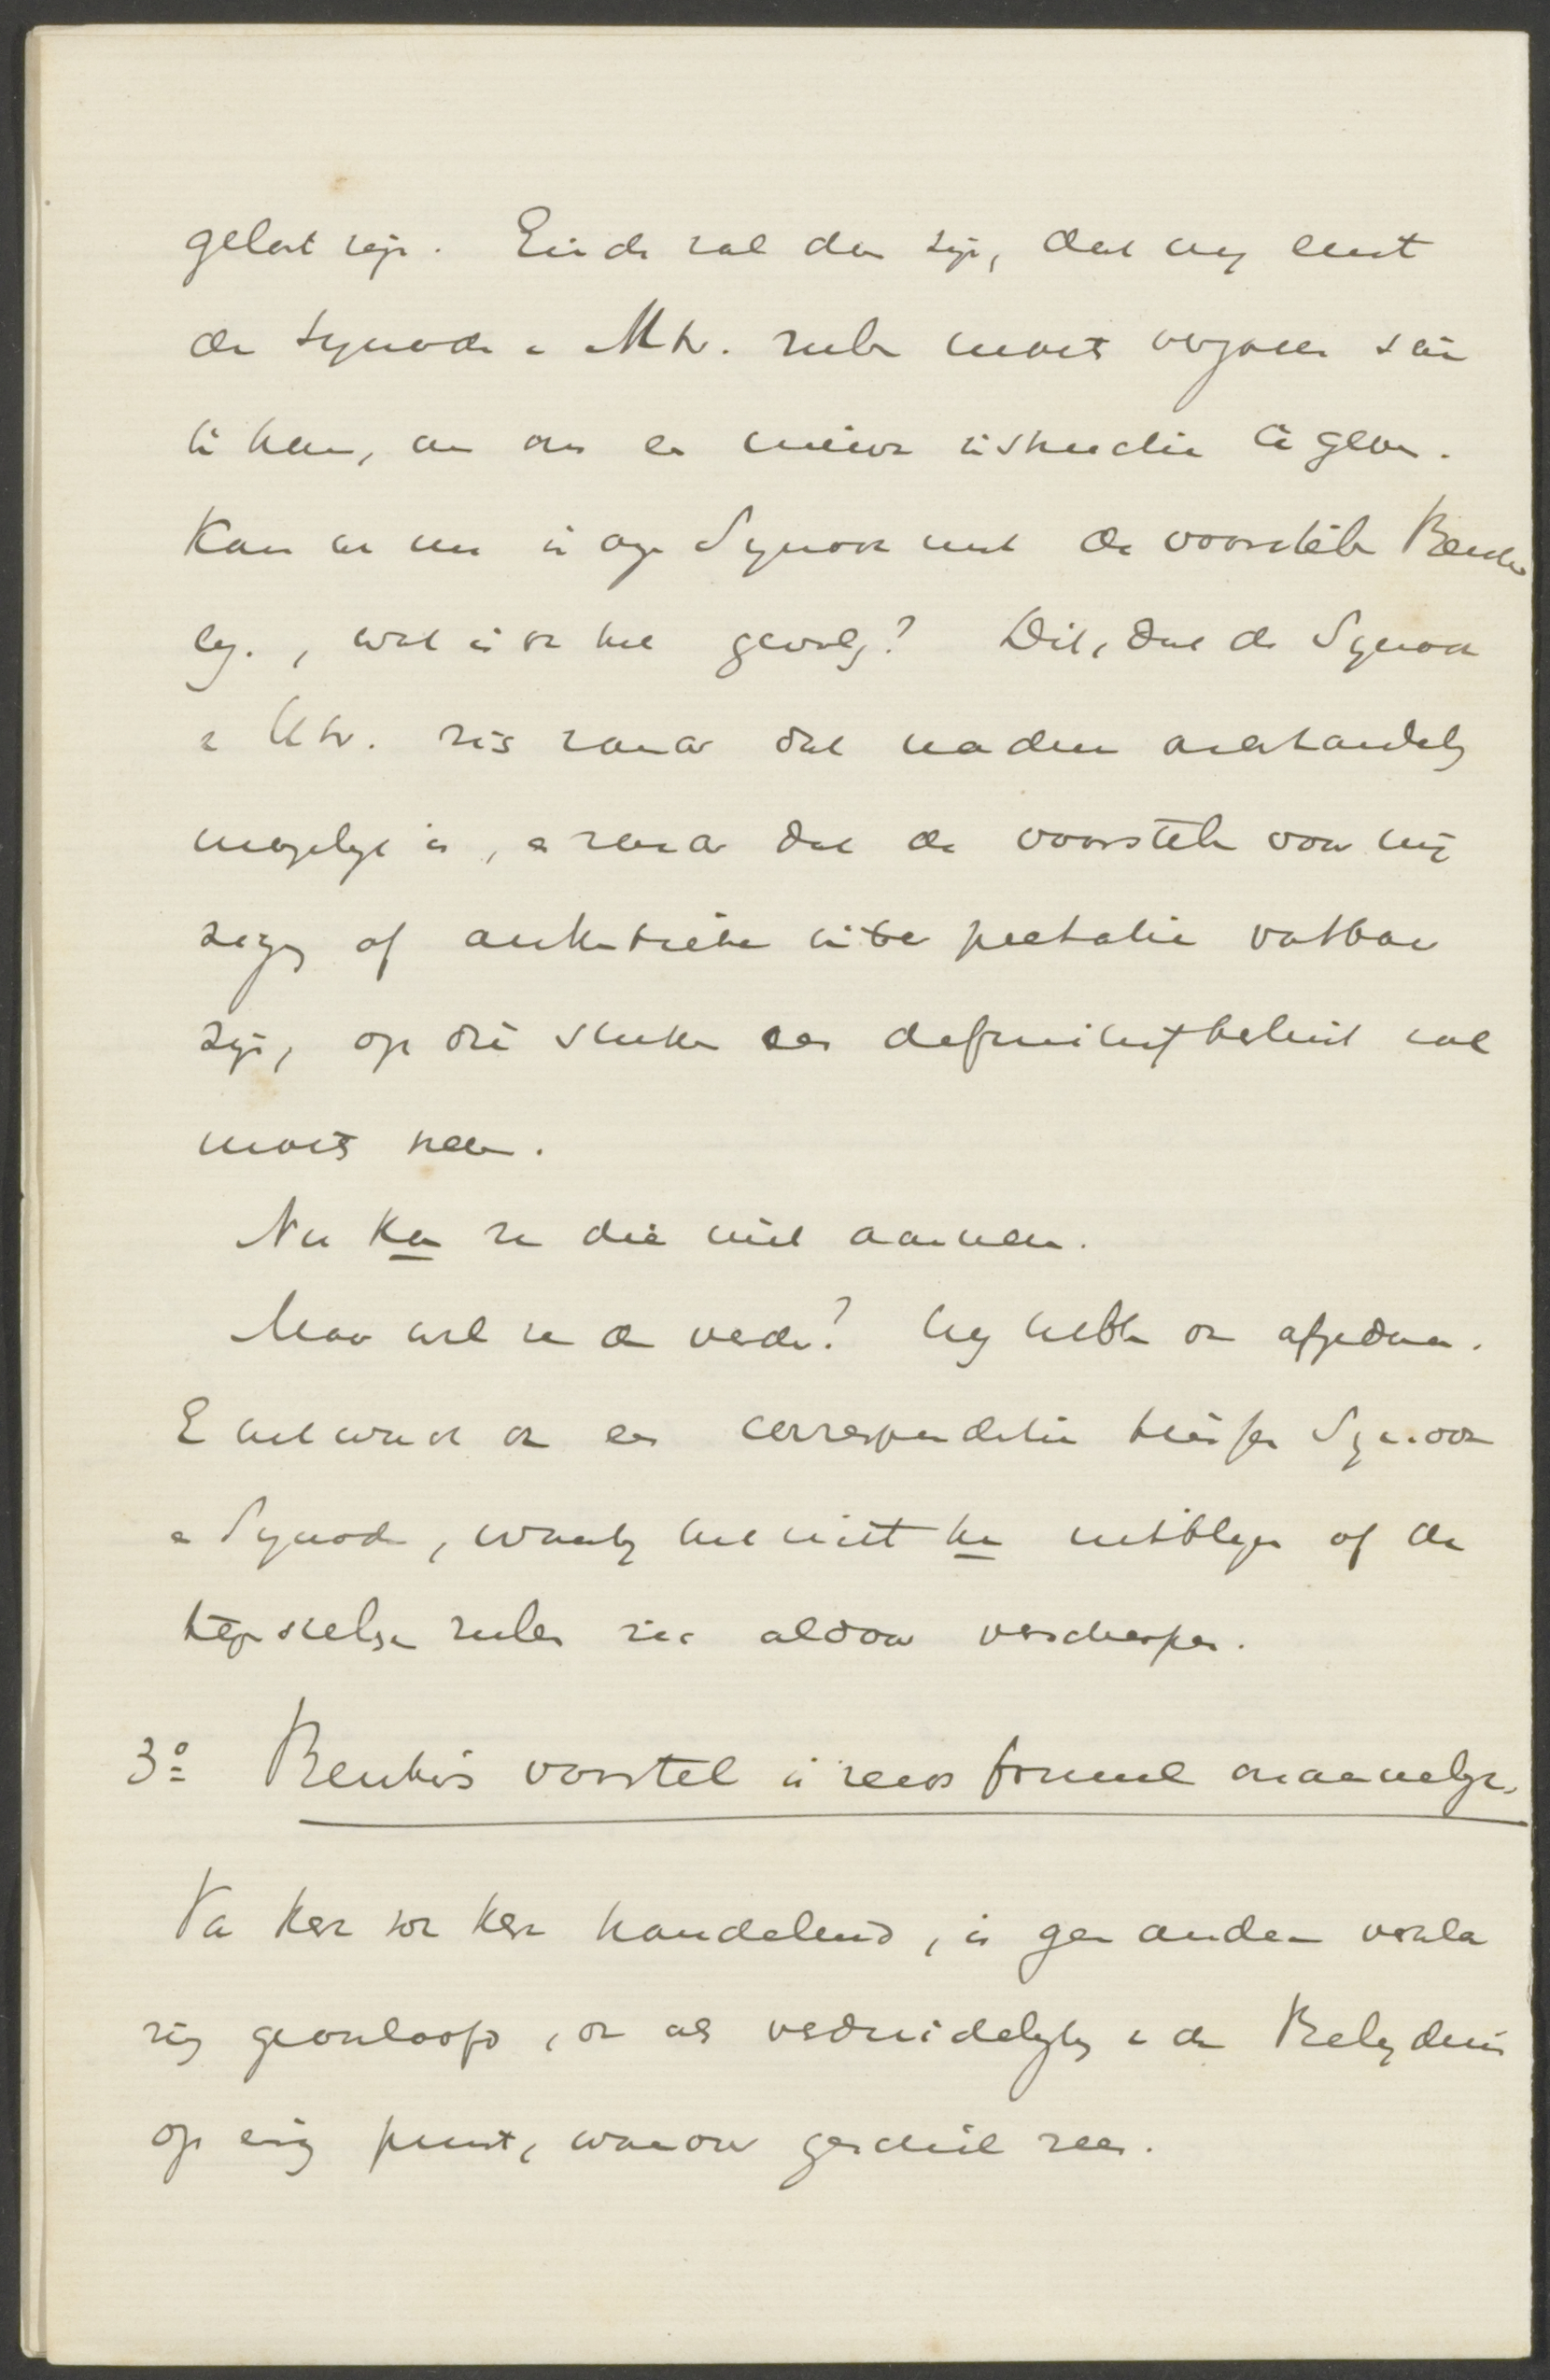 gelast zijn. Einde zal dan zijn, dat wij eerst
de Synode v Utr. zullen moeten verzoeken
te komen, om ons een nieuwe instructie te geven.
Kom er nu in onze Synode met de voorstellen Beuker
c.s., wat is dan het gevolg? Dit, dat de Synode
v Utr. reis zonder dat nadere onderhandeling
mogelijk is, en zonder dat de voorstellen voor wij
ziging of authentieke interpretatie vatbaar
zijn, op die stukken een definitief besluit zal
moeten nemen.
Nu kan ze die niet aannemen.
Maar wat ze dan verder? Wij hebben dan afgedaan.
En het wordt dan een correspondentie tusschen Synode
en Synode, waarbij het niet kan uitblijven of de
tegenstellingen zullen zich aldoor verscherpen.
3º Beuker's voorstel is reeds formeel onaannemelijk.
Van kerk tot kerk handelend, is geen andere verkla
ring geoorloofd, dan als verduidelijking v de Belijdenis
op enig punt, waarover geschil rees.